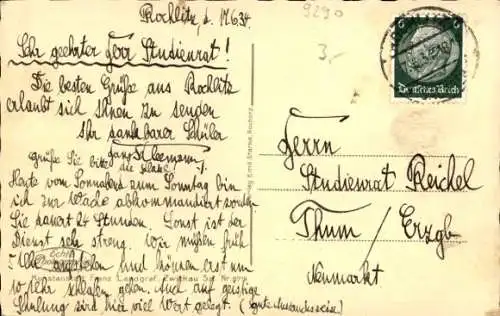 Rochlitz, d. 17.6.34
Sehr geehrter Herr Studienrat!
Die besten Grüße aus Rochlitz
erlaubt sich Ihnen zu senden
Ihr dankbarer Schüler
Grüße Sie bitte
die Klasse
Heute vom Sonnabend zum Sonntag bin
ich zur Wache abkommandiert worden
Sie dauert 24 Stunden. Sonst ist der
Dienst sehr streng. Wir müssen früh
Uhr aufstehen und können erst um
10 Uhr schlafen gehn. Auch auf geistige
Schulung wird hier viel Wert gelegt.
9290
3.-
Deutsches Reich
Herrn
Studienrat Reichel
Thum / Erzgb
Neumarkt
Echte